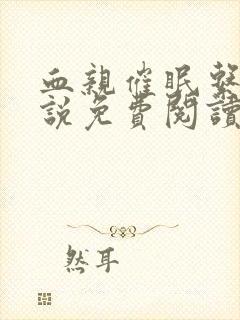 血親催眠
說免費閱讀
然耳